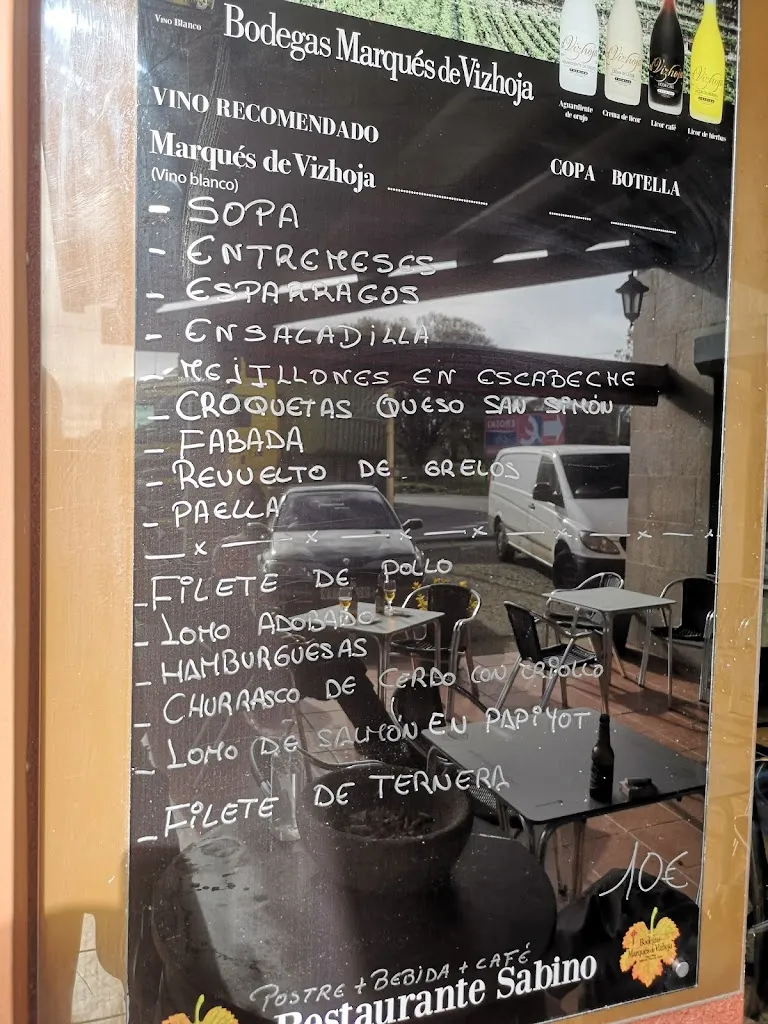 Vino Blanco
Bodegas Marqués de Vizhoja
Vizhoja Vizhoja Vizhoja Vizhoja
Aguardiente de orujo Crema de licor Licor café Licor de hierbas
VINO RECOMENDADO
Marqués de Vizhoja COPA BOTELLA
(Vino blanco)
- SOPA
- ENTREMESES
- ESPARRAGOS
- ENSALADILLA
- MEJILLONES EN ESCABECHE
- CROQUETAS QUESO SAN SIMÓN
- FABADA
- REVUELTO DE GRELOS
- PAELLA
— x — x — x — x — x — x
- FILETE DE POLLO
- LOMO ADOBADO
- HAMBURGUESAS
- CHURRASCO DE CERDO CON CRIOLLO
- LOMO DE SALMÓN EN PAPIYOT
- FILETE DE TERNERA
10€
Bodegas Marqués de Vizhoja
POSTRE + BEBIDA + CAFÉ
Restaurante Sabino